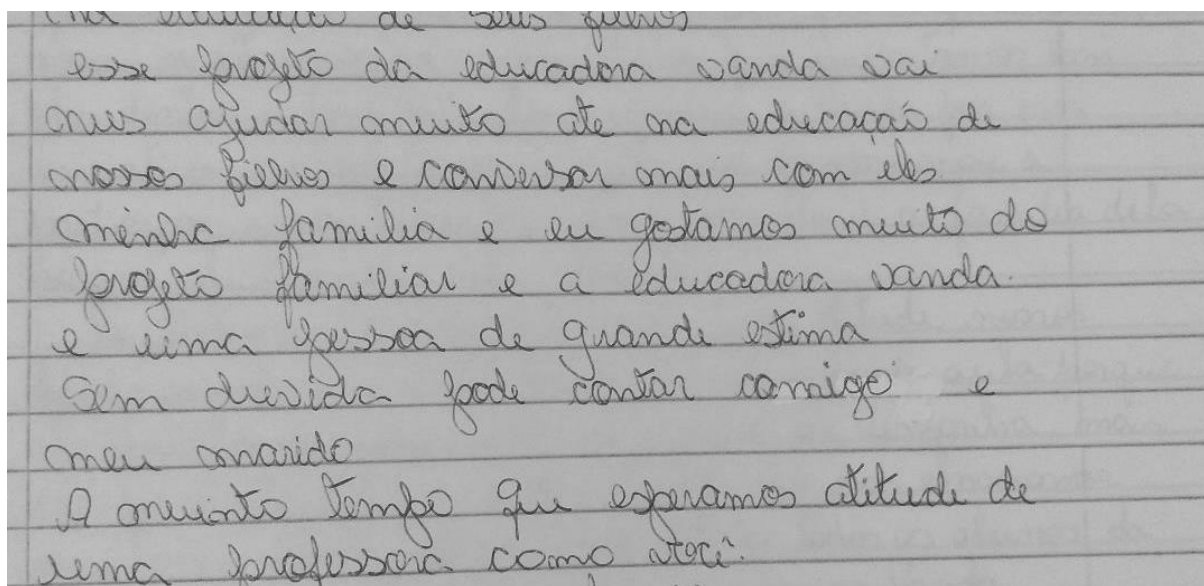 na educação de seus filhos
esse projeto da educadora vanda vai
nus ajudar muito ate na educação de
nosos filhos e conversar mais com eles
minha familia e eu gostamos muito do
projeto familiar e a educadora vanda.
e uma pessoa de grande estima
Sem duvida pode contar comigo e
meu marido
A muinto tempo que esperamos atitude de
uma professora como você.